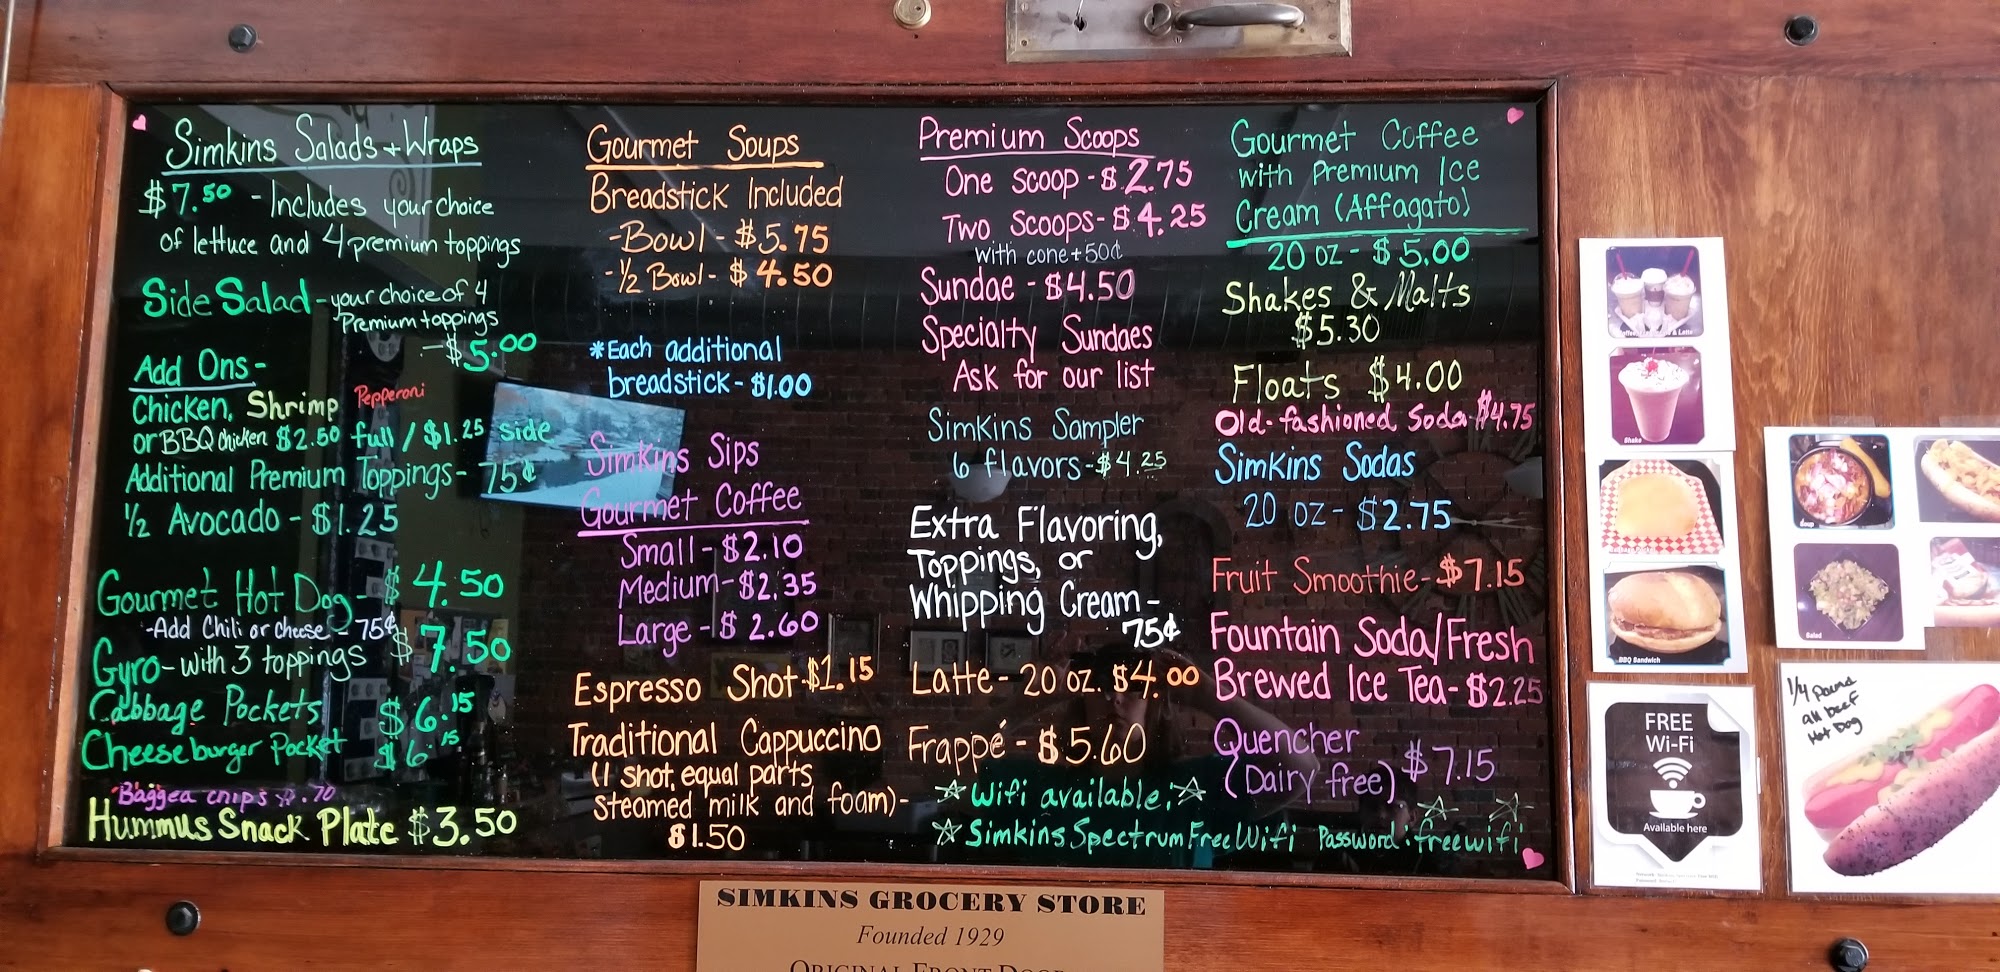 Simkins Salads + Wraps
$7.50 - Includes your choice
of lettuce and 4 premium toppings
Side Salad - your choice of 4
Premium toppings
- $5.00
Add Ons -
Chicken, Shrimp Pepperoni
or BBQ chicken $2.50 full / $1.25 side
Additional Premium Toppings - 75¢
½ Avocado - $1.25
Gourmet Hot Dog - $4.50
- Add Chili or cheese - 75¢
Gyro - with 3 toppings $7.50
Cabbage Pockets $6.15
Cheeseburger Pocket $6.15
Bagged chips $.70
Hummus Snack Plate $3.50
Gourmet Soups
Breadstick Included
- Bowl - $5.75
- ½ Bowl - $4.50
*Each additional
breadstick - $1.00
Simkins Sips
Gourmet Coffee
Small - $2.10
Medium - $2.35
Large - $2.60
Espresso Shot - $1.15
Traditional Cappuccino
(1 shot, equal parts
steamed milk and foam) -
$1.50
Premium Scoops
One scoop - $2.75
Two scoops - $4.25
with cone + 50¢
Sundae - $4.50
Specialty Sundaes
Ask for our list
Simkins Sampler
6 flavors - $4.25
Extra Flavoring,
Toppings, or
Whipping Cream -
75¢
Latte - 20 oz. $4.00
Frappé - $5.60
Gourmet Coffee
with Premium Ice
Cream (Affagato)
20 oz - $5.00
Shakes & Malts
$5.30
Floats $4.00
Old-fashioned Soda $4.75
Simkins Sodas
20 oz - $2.75
Fruit Smoothie - $7.15
Fountain Soda/Fresh
Brewed Ice Tea - $2.25
Quencher
(Dairy free) $7.15
☆ Wifi available: ☆
☆ Simkins Spectrum Free Wifi Password: freewifi
SIMKINS GROCERY STORE
Founded 1929
ORIGINAL FRONT DOOR
Shake
BBQ Sandwich
FREE
Wi-Fi
Available here
Soup
Salad
1/4 Pound
all beef
Hot Dog